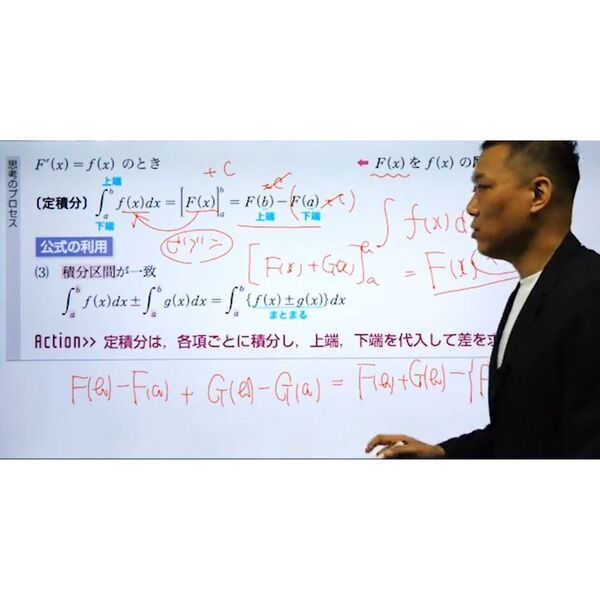 思考のプロセス
F′(x) = f(x) のとき
+ C
← F(x) を f(x) の
〔定積分〕 ∫_a^b f(x)dx = [F(x)]_a^b = F(b) − F(a)
上端 下端
上端 下端
∫ f(x) d
公式の利用
[F(x) + G(x)]_a^b = F(x)
(3) 積分区間が一致
∫_a^b f(x)dx ± ∫_a^b g(x)dx = ∫_a^b {f(x) ± g(x)}dx
まとまる
Action>> 定積分は，各項ごとに積分し，上端，下端を代入して差を求
F(b) − F(a) + G(b) − G(a) = F(b) + G(b) − {F